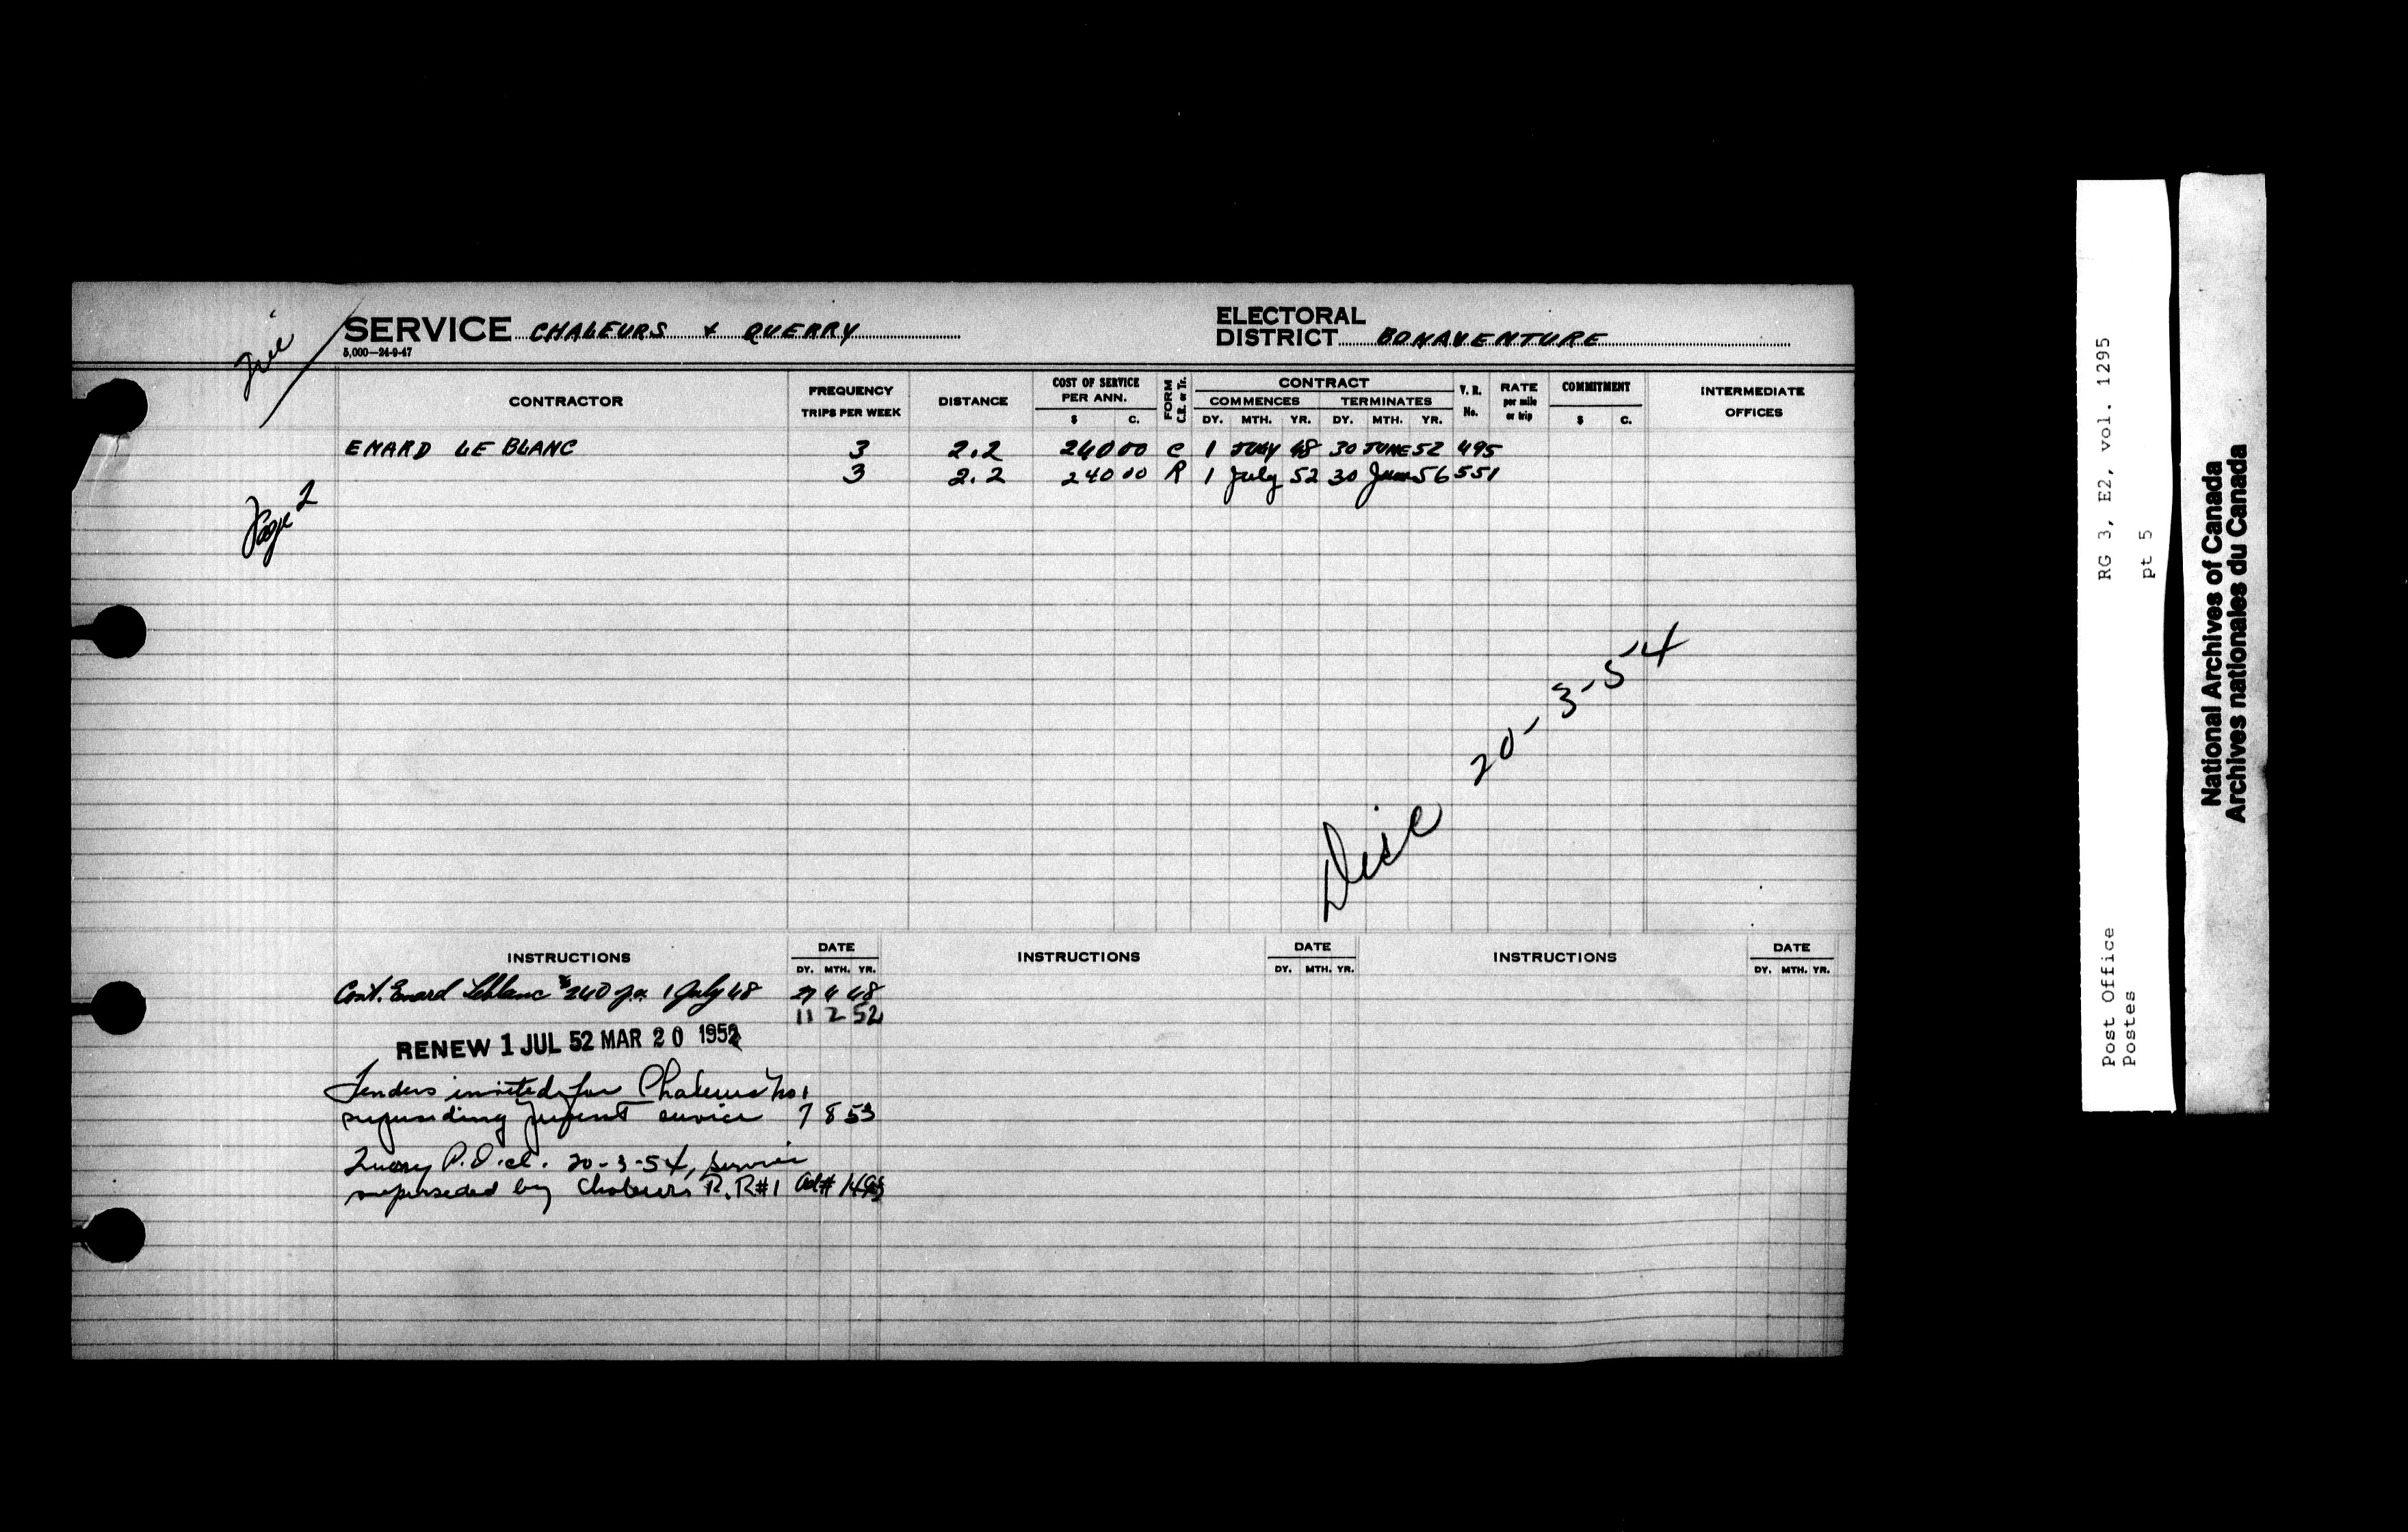 SERVICE CHALEURS & QUERRY
5,000—24-9-47
ELECTORAL
DISTRICT BONAVENTURE
Page 2
CONTRACTOR
FREQUENCY
TRIPS PER WEEK
DISTANCE
COST OF SERVICE
PER ANN.
$ C.
FORM
C.R. or Tr.
CONTRACT
COMMENCES TERMINATES
DY. MTH. YR. DY. MTH. YR.
V. R.
No.
RATE
per mile
or trip
COMMITMENT
$ C.
INTERMEDIATE
OFFICES
ENARD LE BLANC 3 2.2 240 00 C 1 JULY 48 30 JUNE 52 495
3 2.2 240 00 R 1 July 52 30 June 56 551
Disc 20-3-54
INSTRUCTIONS DATE INSTRUCTIONS DATE INSTRUCTIONS DATE
DY. MTH. YR. DY. MTH. YR. DY. MTH. YR.
Cont. Enard Leblanc $240 pa 1 July 48 27 4 48
11 2 52
RENEW 1 JUL 52 MAR 20 1952
Tenders invited for Chaleurs No 1
superseding present service 7 8 53
Querry P.O. cl. 20-3-54, service
superseded by Chaleurs R.R#1
RG 3, E2, vol. 1295
pt 5
Post Office
Postes
National Archives of Canada
Archives nationales du Canada